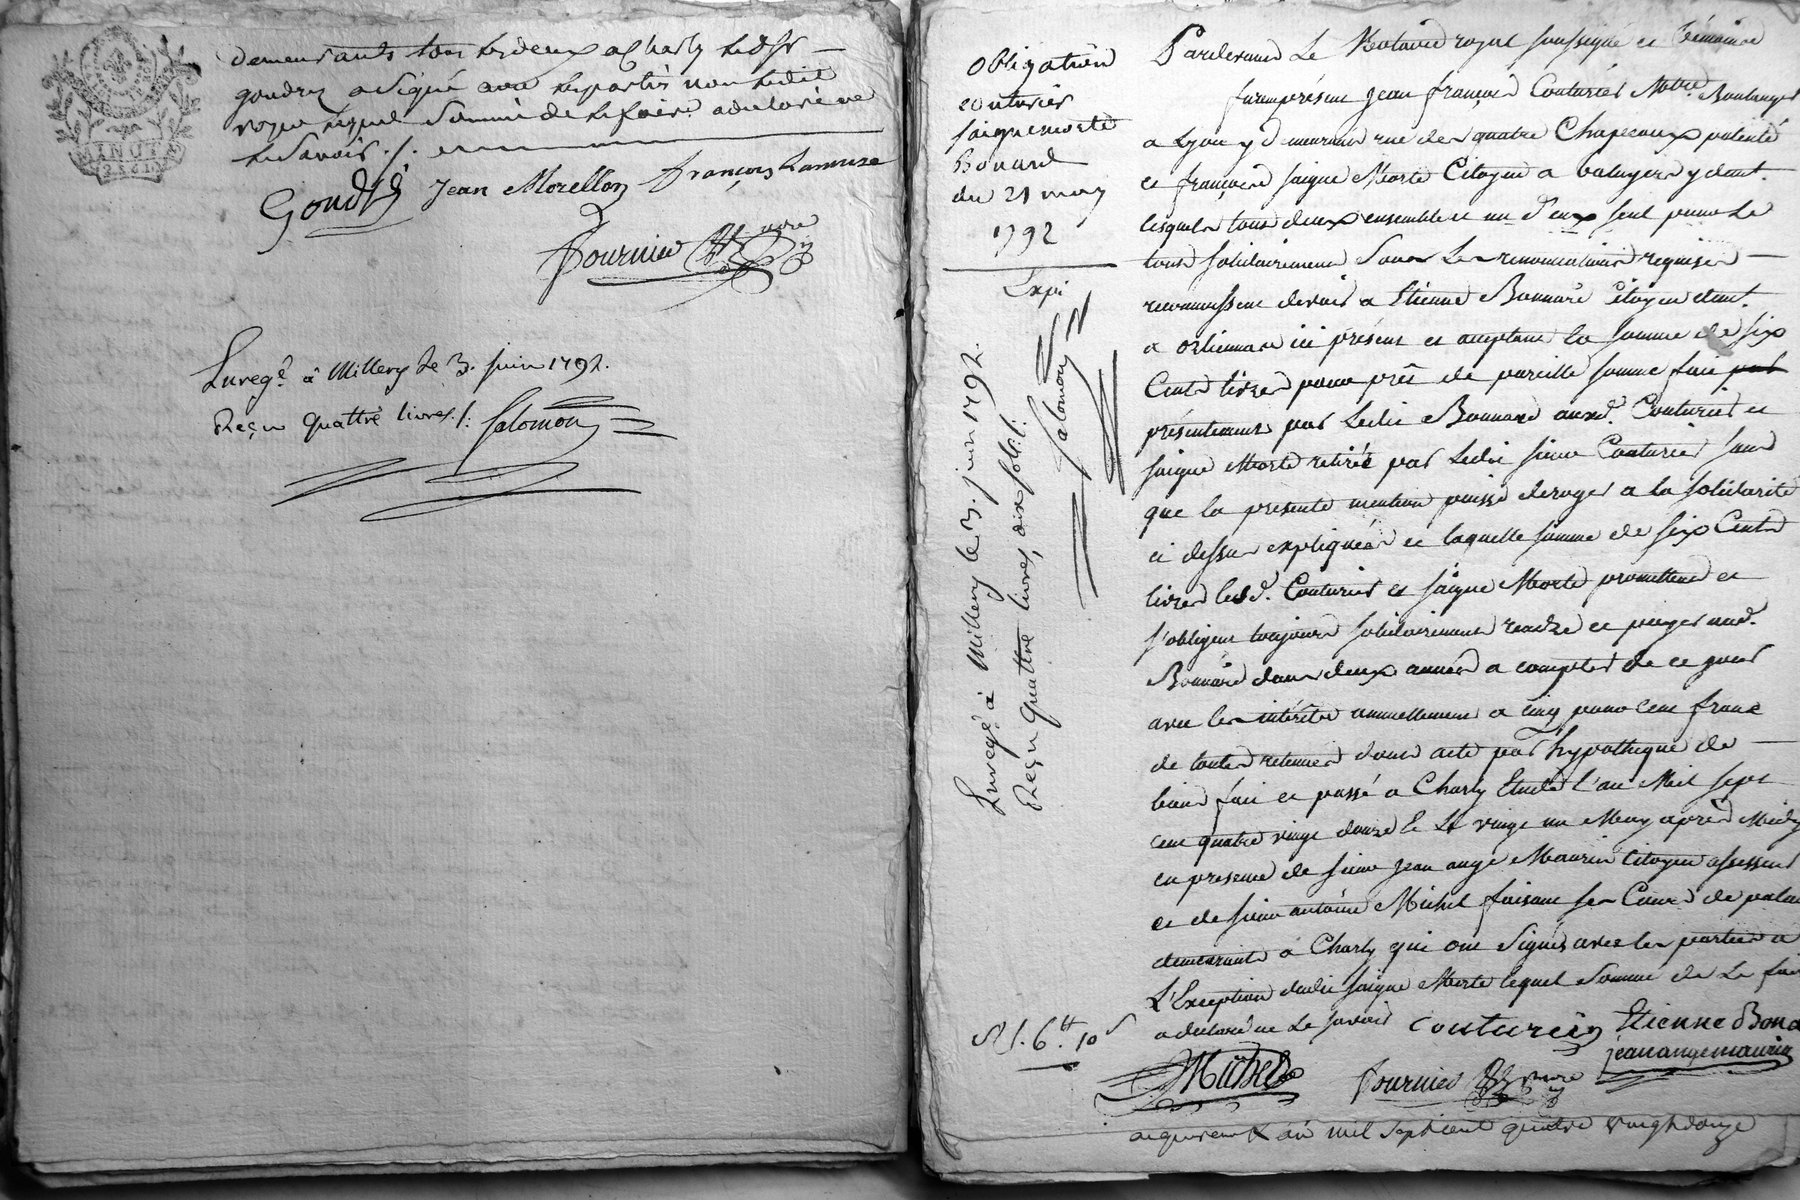 demeurants tous les deux a Charly led. Sr
goudry a signé avec les parties non ledit
royer lequel sommé de le faire a declaré ne
le savoir ./.
Goudry Jean Morellon françois Lamure
fournier
Enregé. à Millery le 3. juin 1792.
Reçu quattre livres ./. Salomon
obligation
couturier
saignemorte
Bonard
du 21 may
1792
Expé
Enregé. à Millery le 3. juin 1792.
Reçu quattre livres, dix sols ./.
Salomon
Pardevant Le Notaire royal soussigné et témoins
furent présent jean françois Couturier Mtre. Boulanger
a Lyon y demeurant rue des quatre Chapeaux patenté
et françois saigne Morte Citoyen a demt.
lesquels tous deux ensemble et un d'eux seul pour le
tout solidairement sous les renonciations requises
reconnoissent devoir a Etienne Bonnard Citoyen demt.
a orlienas ici présent et acceptant la somme de six
Cents livres pour prêt de pareille somme fait
présentement par Ledit Bonnard auxd. Couturier et
saigne Morte retirée par Ledit sieur Couturier sans
que la presente mention puisse deroger a la solidarité
ci dessus expliquée et laquelle somme de six Cents
livres lesd. Couturier et saigne Morte promettent et
s'obligent toujours solidairement rendre et payer aud.
Bonnard dans deux années a compter de ce jour
avec les intérêts annuellement a cinq pour cent franc
de toutes retenues dont acte par hypotheque de
biens fait et passé a Charly Etude l'an Mil sept
cent quatre vingt douze le vingt un May après Midy
en presence de sieur jean ange Maurin Citoyen assesseur
et de sieur antoine Michel faisant ses Cours de
demeurants a Charly qui ont signés avec les parties a
L'Exception dudit saigne Morte lequel sommé de le faire
a declaré ne le savoir couturier Etienne Bona
jean ange maurin
Michel fournier
6tt. 10s
an mil sept cent quatre vingt douze